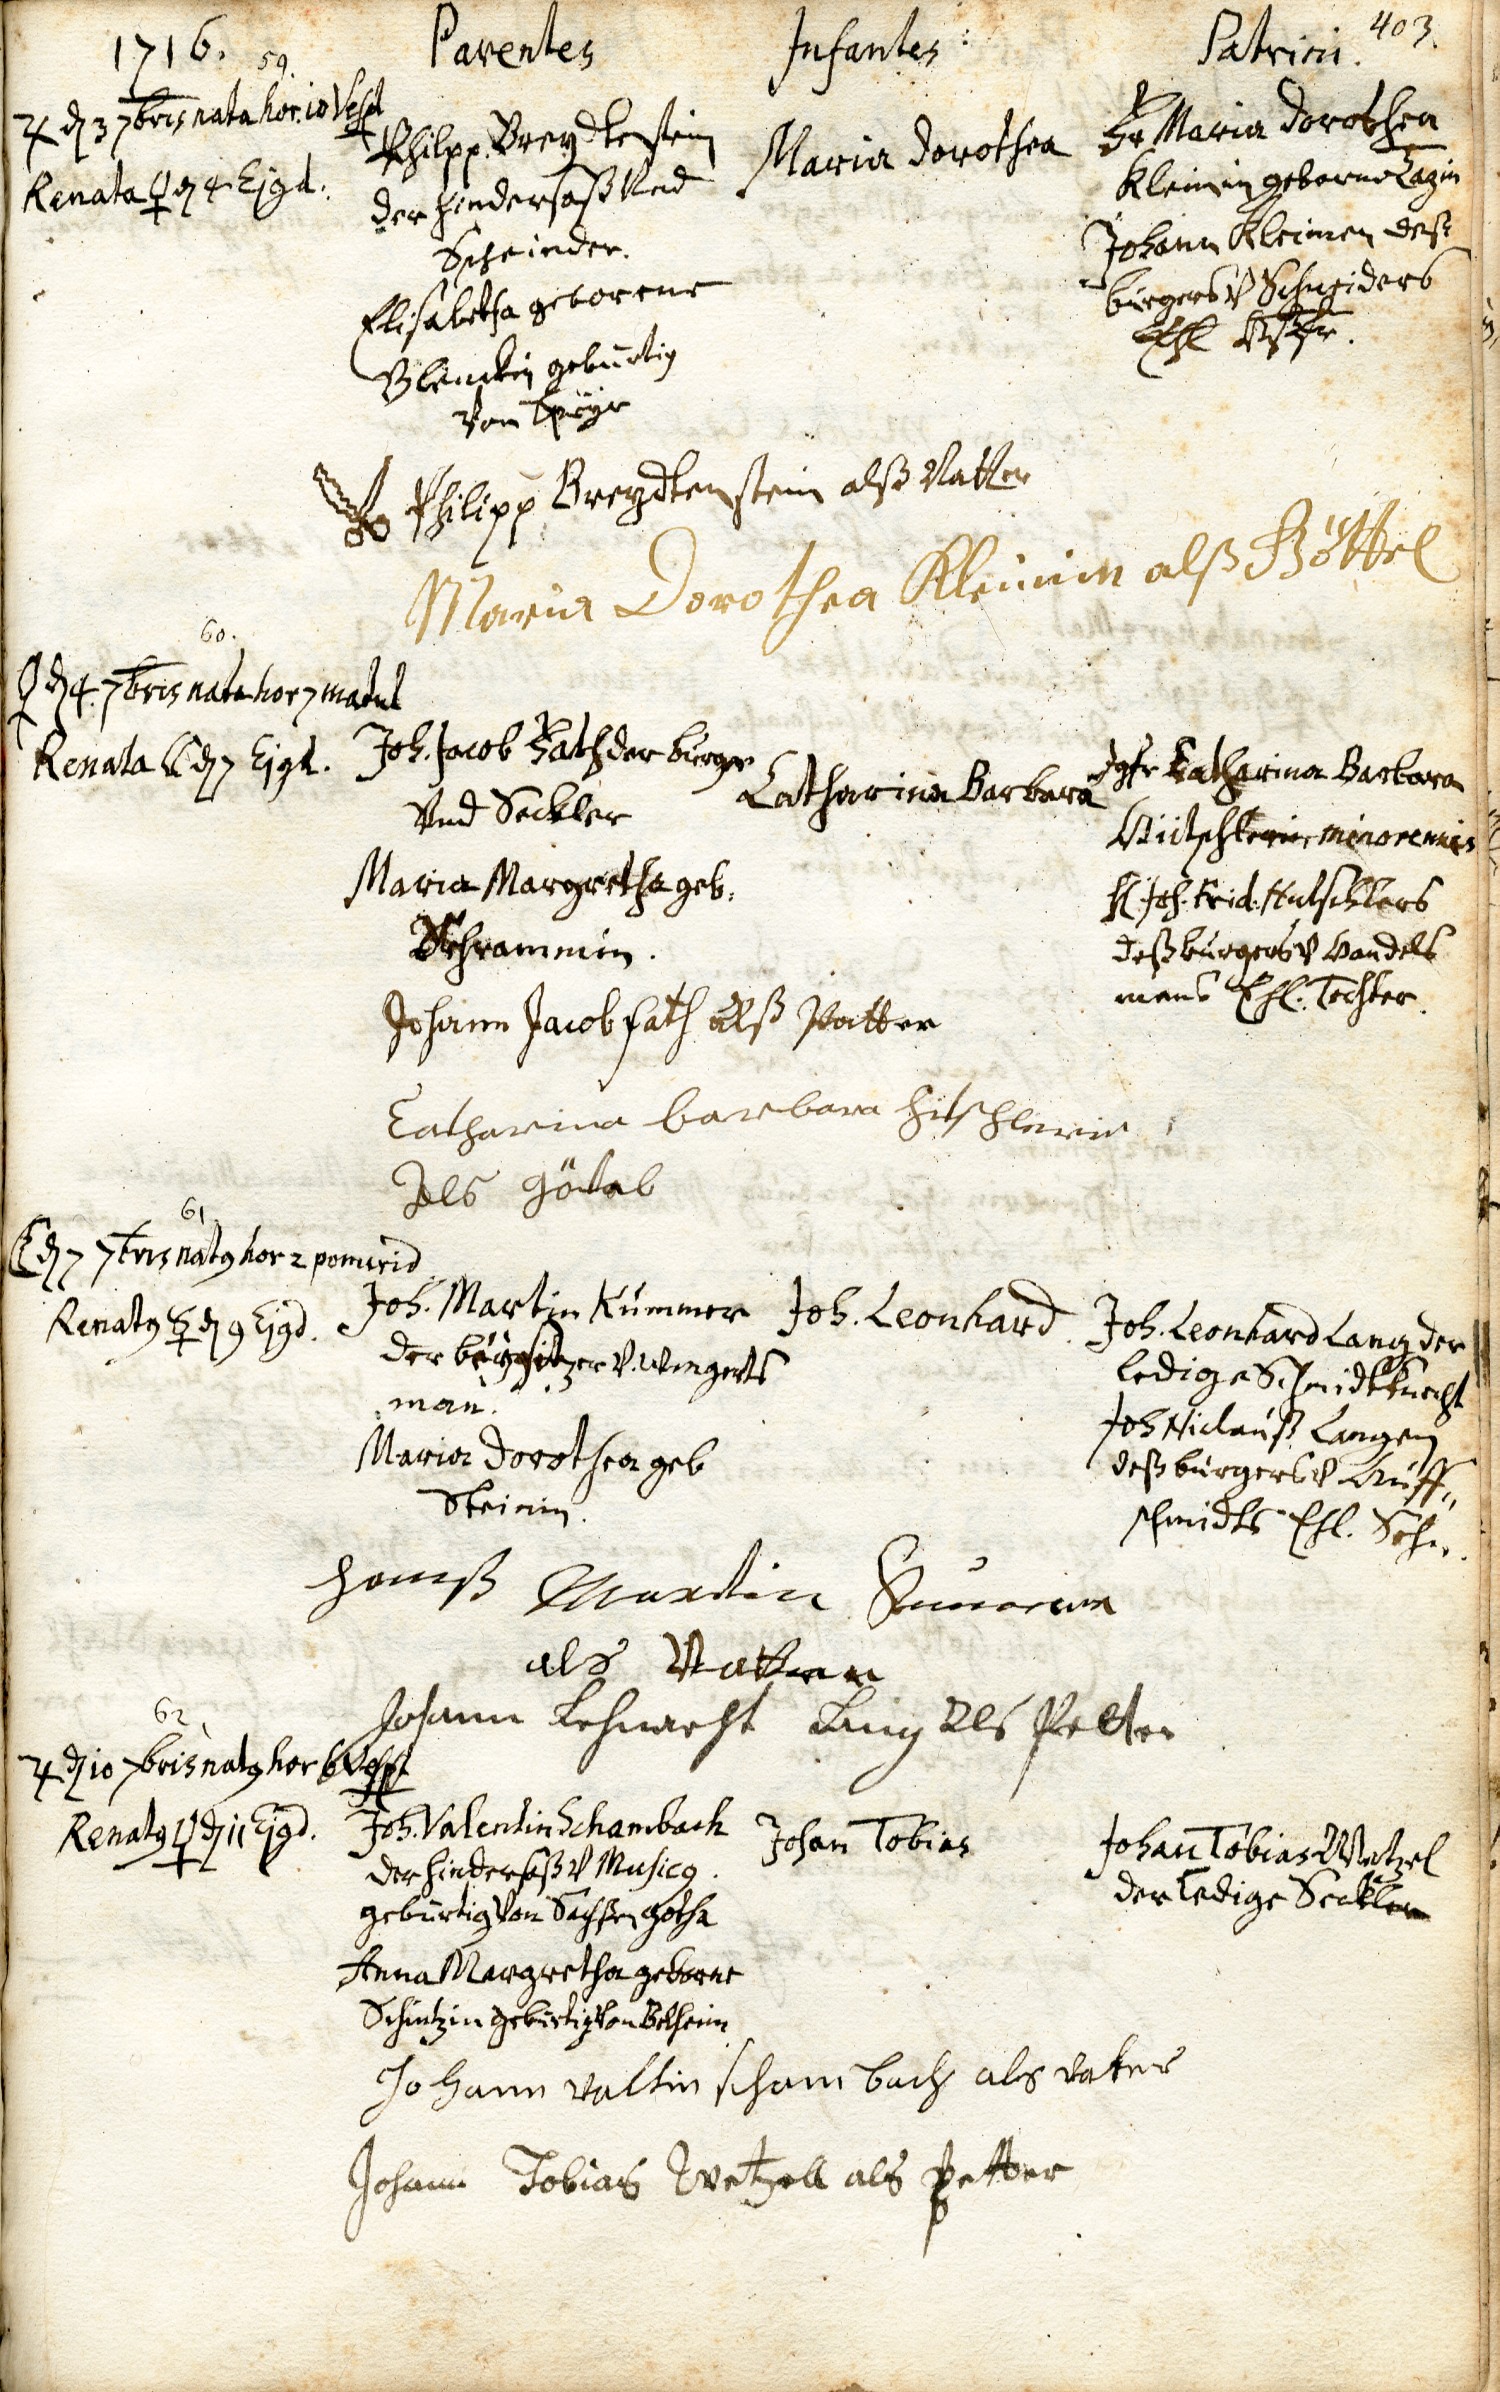 1716. Parentes Infantes: Patrini. 403.
59.
♃ d 3 7bris nata hor. 10 Vesp
Renata ♀ d 4 Ejgd.
Philpp. Breydtenstein
der hindersaß Und
Schneider.
Elisabetha geborene
gebürtig
Von
Maria Dorothea
Fr Maria Dorothea
Kleinin geborne
Johann Kleinen deß
burgers V Schneiders
Ehl
Philipp Breydtenstein alß Vatter
Maria Dorothea Kleinin alß Göttel
60.
♀ d 4. 7bris nata hor 7 matut
Renata ☾ d 7 Ejgd.
Joh. Jacob Fath der burger
Vnd Seckler
Maria Margretha geb.
Schrammin.
Catharina Barbara
Jgfr Catharina Barbara
minorennis
H. Joh. Frid. Hutschlers
deß burgers V Handels
mans Ehl. Tochter.
Johann Jacob fath alß Vatter
Catharina barbara hitschlerin
Als götel
61
☾ d 7 7bris natg hor 2 pomerid
Renatg ☿ d 9 Ejgd.
Joh. Martin Kummer
der beysitzer V. wingerts
man.
Maria Dorothea geb
Steinin.
Joh. Leonhard.
Joh. Leonhard Lang der
ledige Schmidtknecht
Joh Niclauß Langen
deß burgers V Huff„
schmidts Ehl. Sohn.
hanß Martin Kummer
als Vatter
Johann Lehnarht Lang Als Petter
62
♃ d 10 7bris natg hor 6 Vesp
Renatg ♀ d 11 Ejgd.
Joh. Valentin Schambach
der hindersaß V Musicg.
gebürtig Von Sachsen gotha
Anna Margretha geborne
Schützin gebürtig Von Belheim
Johan Tobias
Johan Tobias Wetzel
der Ledige Seckler
Johann valtin schambach als vater
Johann Tobias Wetzell als petter